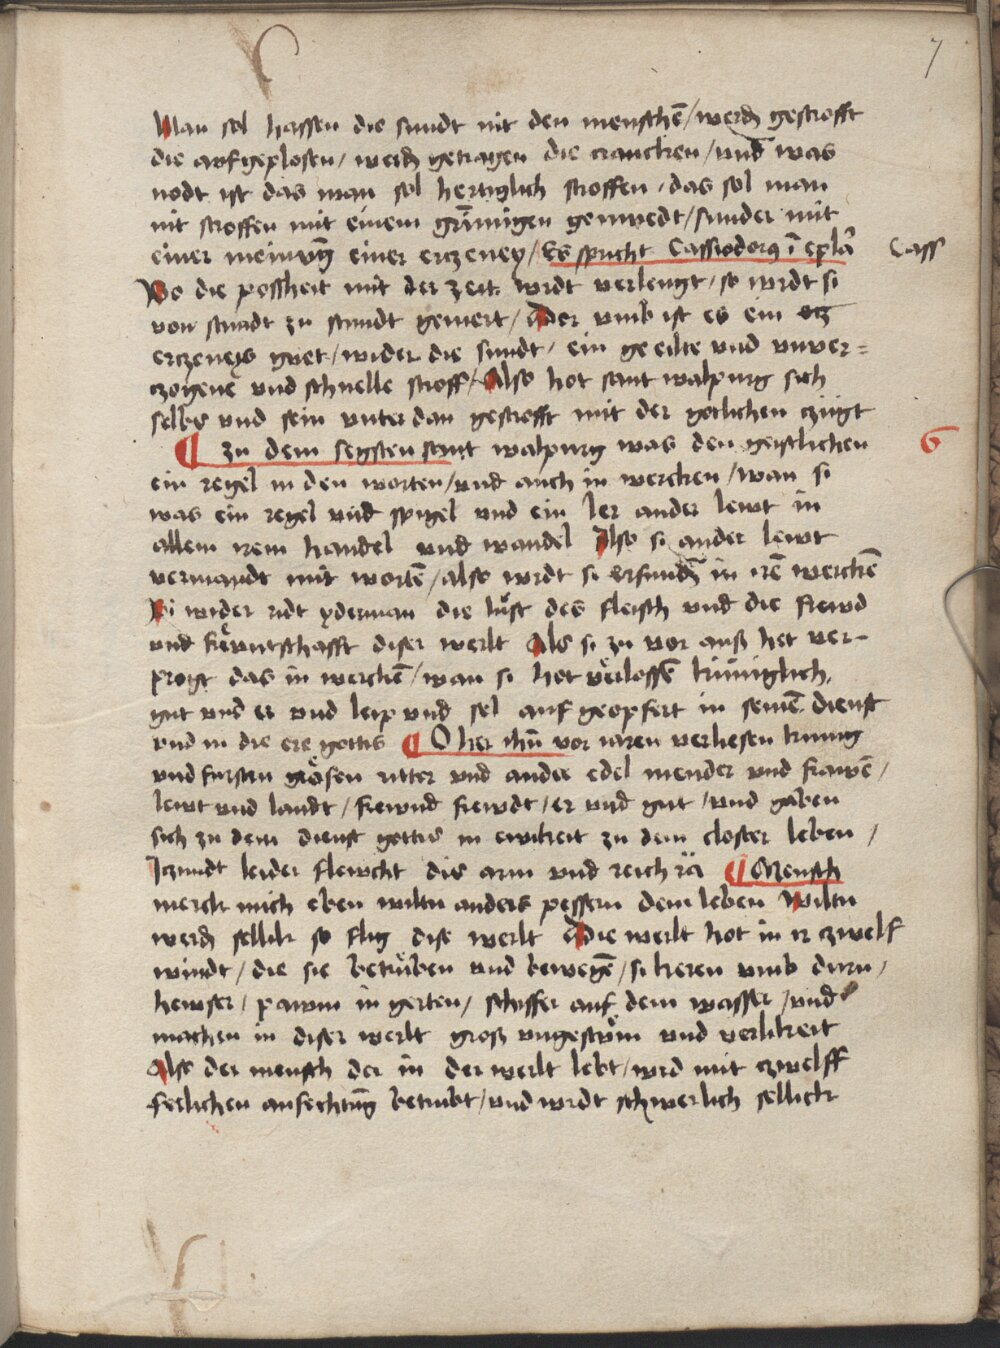 7
Man sol hassen die sundt nit den menschē / werdn gestrofft
die aufgeplosen / werdn getragen die krancken / und was
nodt ist das man sol hertiglich stroffen / das sol man
nit stroffen mit einem grimigen gemuedt / sunder mit
einer meinūg einer erczeney / Es spricht Cassiodorus ī epla
Cass
Wo die possheit mit der zeit wirdt verlengt / so wirdt si
von stundt zu stundt gemert / Dor umb ist es ein
erczeneis guet / wider die sundt / ein geeilte und unver=
czogene und schnelle stroff / Also hot sant walpurg sich
selbs und sein unterdan gestrofft mit der gotlichen czugt
¶ zu dem segsten sant walpurg was den geistlichen
6
ein regel in den worten / und auch in wercken / wan si
was ein regel und spigel und ein ler ander lewt in
allem irem handel und wandel Also si ander lewt
vermandt mit wortē / also wirdt si erfundn in irē werckē
Si wider ridt yderman die lust des fleisch und die frewd
und frewntschafft diser werlt Als si zu vor auß het ver-
progt das in werckē / wan si hot verlossē kuniglich
gut und er und leip und sel auf geopfert in seinē dienst
und in die ere gottis ¶ O her ihū vor iaren verliesen kunig
und fursten grofen ritter und ander edel mender und frawē /
lewt und landt / frewnd frewdt / er und gut / und gaben
sich zu dem dienst gottis in ewikeit zu dem closter leben /
Iczundt leider flewcht dis arm und reich ¶ Mensch
merck mich eben wiltu anders pessern dein leben Wiltu
werdn sellik so flug dise werlt Die werlt hot in ir czwelf
windt / die sie betruben und bewegē / si keren umb durn /
hewser / pawm in gerten / schiffer auf dem wasser / und
machen in diser werlt groß ungestum und verlikeit
Also der mensch der in der werlt lebt / wird mit czwelff
ferlichen anfechtūg betrubt / und wirdt schwerlich sellick